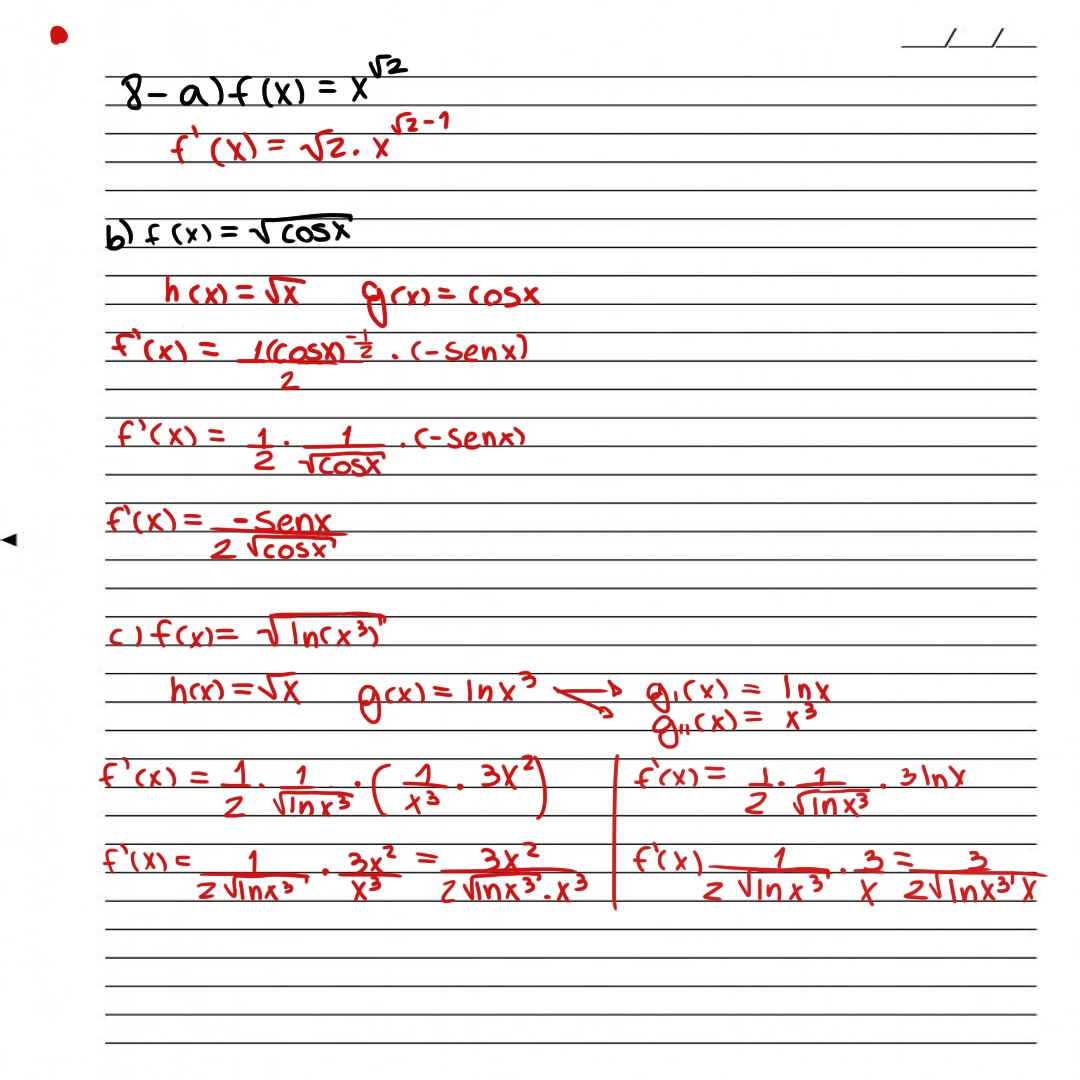 8- a) f(x) = x^√2
f'(x) = √2 . x^(√2-1)
b) f(x) = √cosx
h(x) = √x g(x) = cosx
f'(x) = 1(cosx)^(-1/2)/2 . (-senx)
f'(x) = 1/2 . 1/√cosx . (-senx)
f'(x) = -senx/2√cosx
c) f(x) = √ln(x³)
h(x) = √x g(x) = lnx³ → g₁(x) = lnx
g₁₁(x) = x³
f'(x) = 1/2 . 1/√lnx³ . (1/x³ . 3x²)
f'(x) = 1/2√lnx³ . 3x²/x³ = 3x²/2√lnx³ . x³
f'(x) = 1/2 . 1/√lnx³ . 3lnx
f'(x) 1/2√lnx³ . 3/x = 3/2√lnx³ x